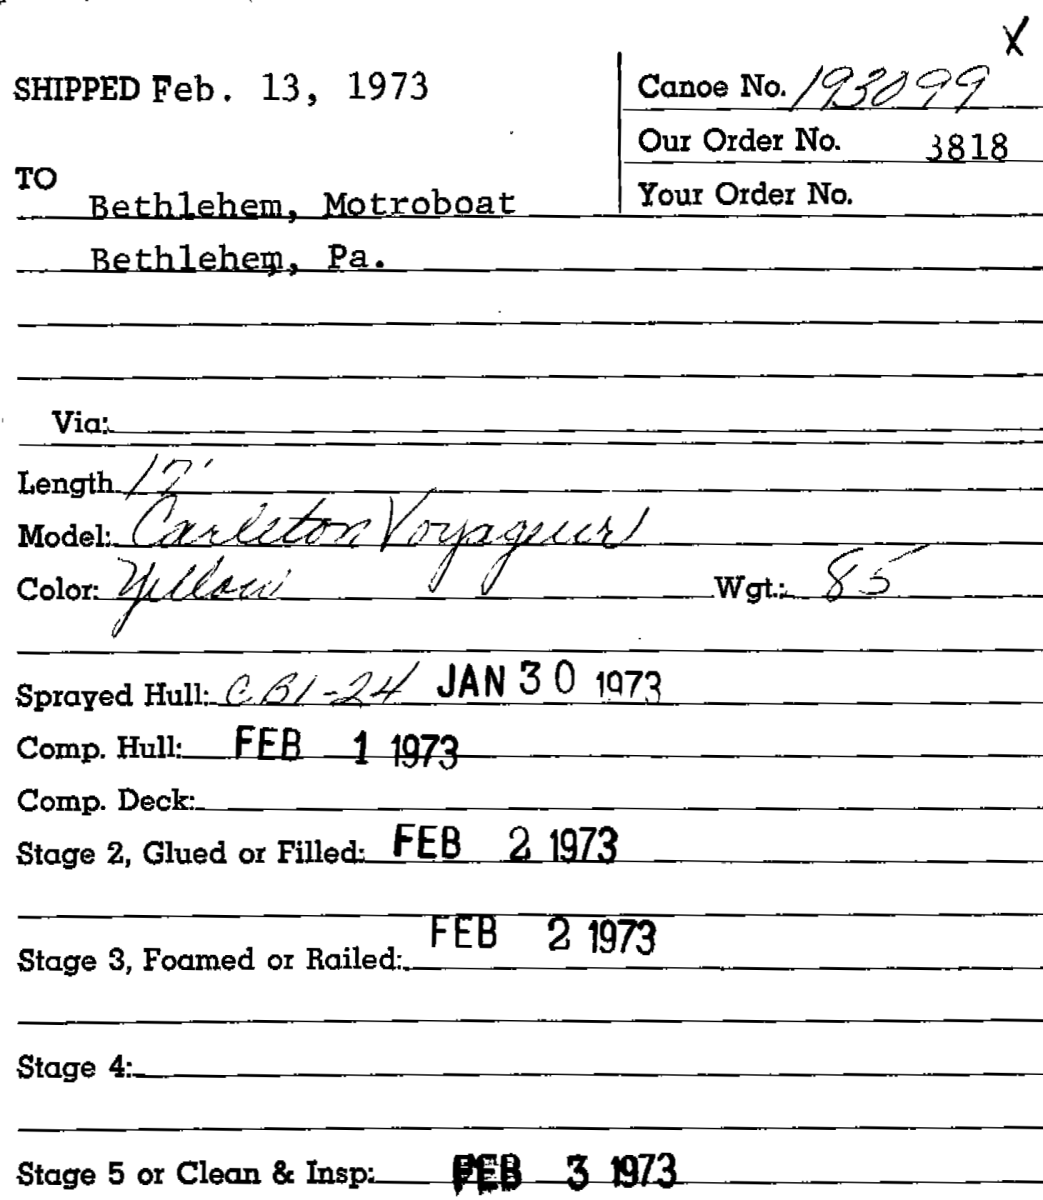 X
SHIPPED Feb. 13, 1973
Canoe No. 193099
Our Order No. 3818
TO
Your Order No.
Bethlehem, Motroboat
Bethlehem, Pa.
Via:
Length 17'
Model: Carleton Voyageur
Color: Yellow Wgt.: 85
Sprayed Hull: CB1-24 JAN 30 1973
Comp. Hull: FEB 1 1973
Comp. Deck:
Stage 2, Glued or Filled: FEB 2 1973
Stage 3, Foamed or Railed: FEB 2 1973
Stage 4:
Stage 5 or Clean & Insp: FEB 3 1973